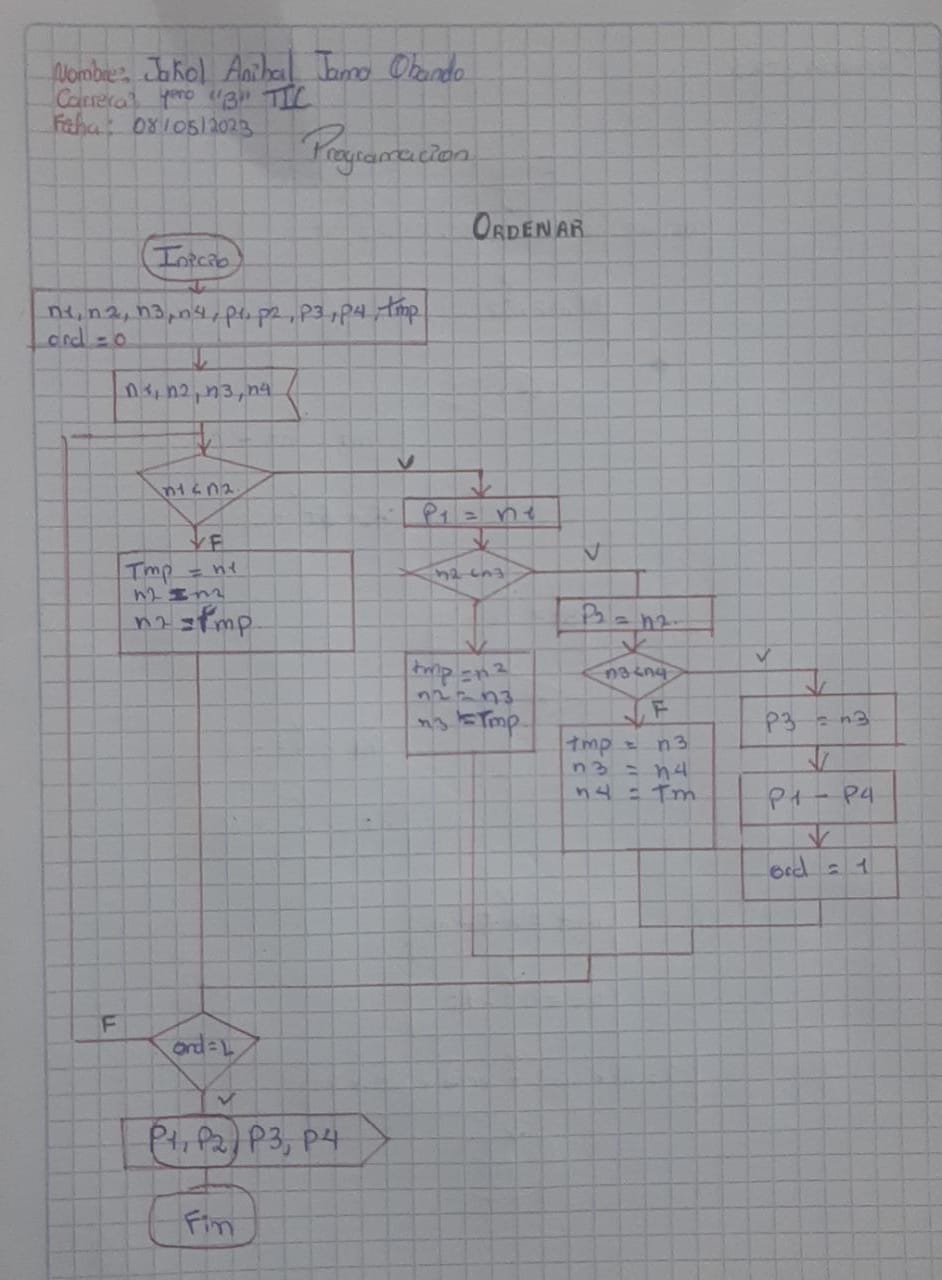 Nombre: Jokol Anibal Jamo Obando
Carrera: 1ero "B" TIC
Fecha: 08/05/2023
Programacion
ORDENAR
Inicio
n1, n2, n3, n4, p1, p2, p3, p4, tmp
ord = 0
n1, n2, n3, n4
n1 < n2
V
F
P1 = n1
Tmp = n1
n2 = n2
n2 = tmp
n2 < n3
V
P2 = n2
tmp = n2
n2 = n3
n3 = Tmp
n3 < n4
V
F
P3 = n3
tmp = n3
n3 = n4
n4 = Tm
P1 - P4
ord = 1
F
ord = 1
V
P1, P2, P3, P4
Fin